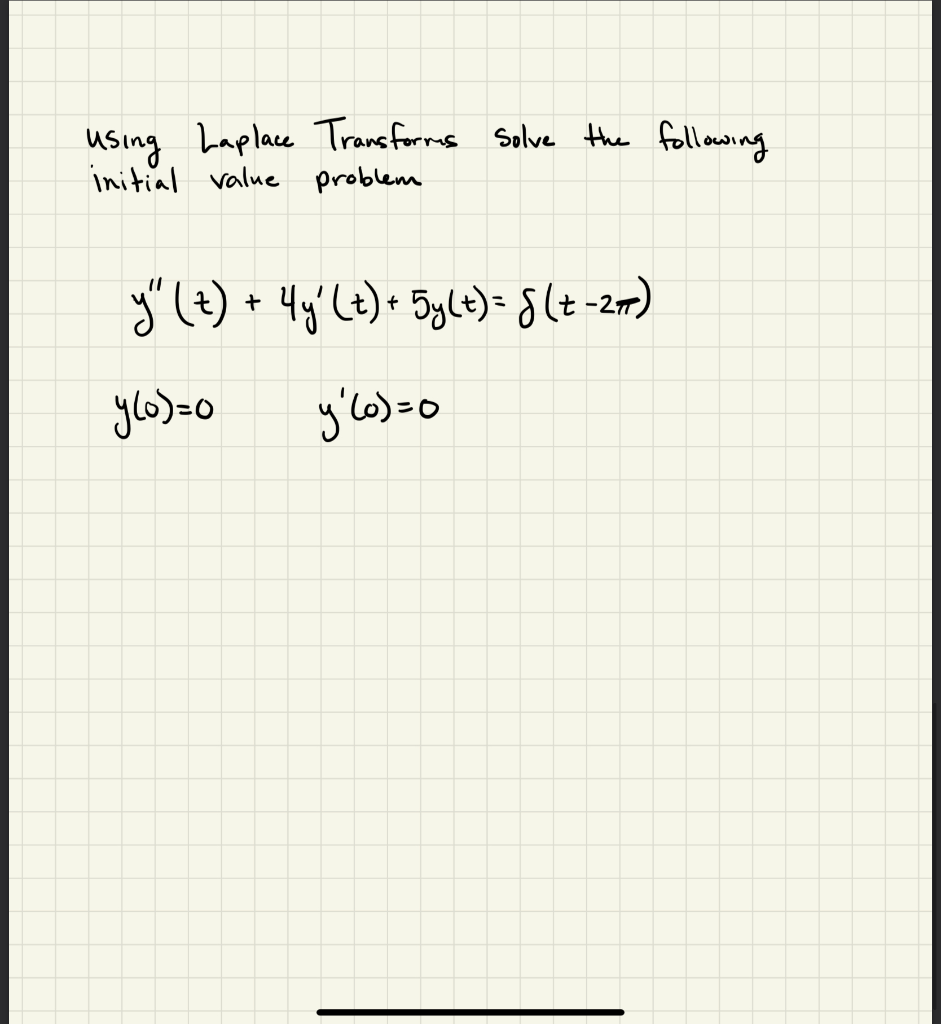 using Laplace Transforms solve the following
initial value problem
y''(t) + 4y'(t) + 5y(t) = δ(t - 2π)
y(0)=0 y'(0)=0